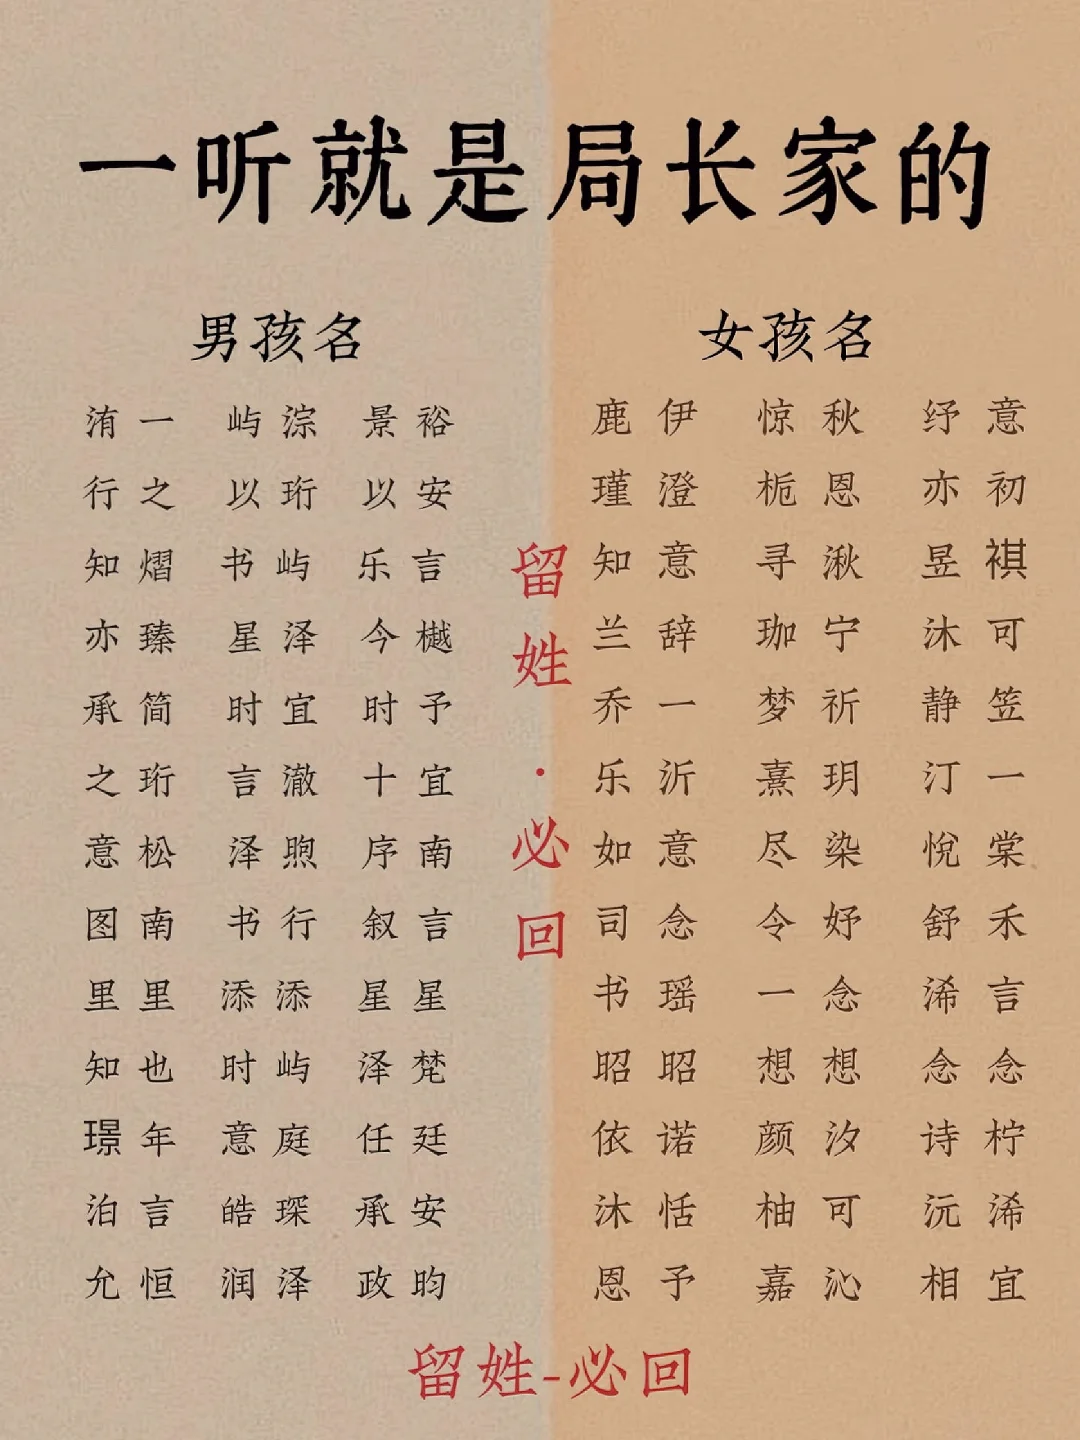 一听就是局长家的
男孩名
洧一 屿淙 景裕
行之 以珩 以安
知熠 书屿 乐言
亦臻 星泽 今樾
承简 时宜 时予
之珩 言澈 十宜
意松 泽煦 序南
图南 书行 叙言
里里 添添 星星
知也 时屿 泽梵
璟年 意庭 任廷
泊言 皓琛 承安
允恒 润泽 政昀
留姓·必回
女孩名
鹿伊 惊秋 纾意
瑾澄 栀恩 亦初
知意 寻湫 昱祺
兰辞 珈宁 沐可
乔一 梦祈 静笠
乐沂 熹玥 汀一
如意 尽染 悦棠
司念 令妤 舒禾
书瑶 一念 浠言
昭昭 想想 念念
依诺 颜汐 诗柠
沐恬 柚可 沅浠
恩予 嘉沁 相宜
留姓-必回